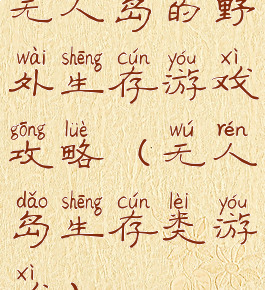 无人岛的野
wài shēng cún yóu xì
外生存游戏
gōng lüè wú rén
攻略（无人
dǎo shēng cún lèi yóu
岛生存类游
xì